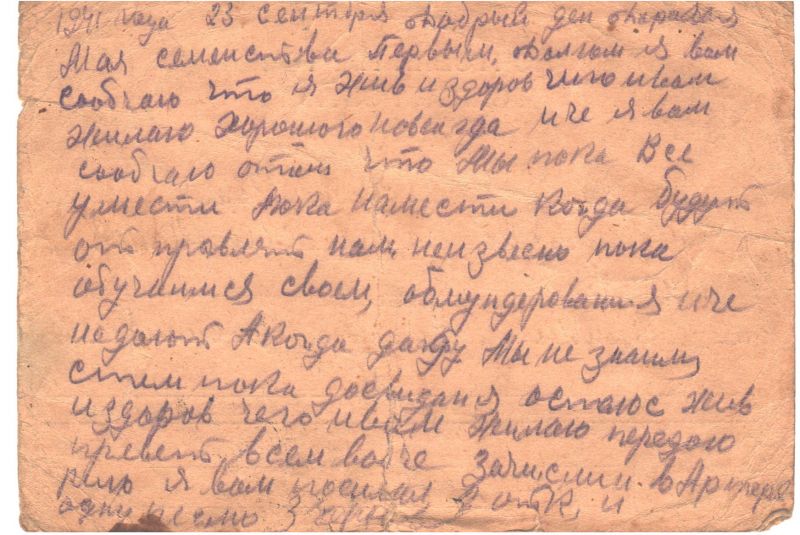 1941 года 23 сентября добрый ден дарагая
Мая семейства Первым долгом я вам
сообчаю что я жив издоров чего ивам
жилаю хорошого новсегда иче я вам
сообчаю отом что Мы пока Все
умести Пока намести когда будут
от провлять нам неизвесно пока
обучаимся своем, обмундерования иче
недоют Акогда дадут Мы не знаим
стем пока досвидания остаюс жив
издоров чего ивам жилаю передою
превет всем вобче зачислили в Артеле
рию я вам посилал 2 отк, и
одну песмо 3